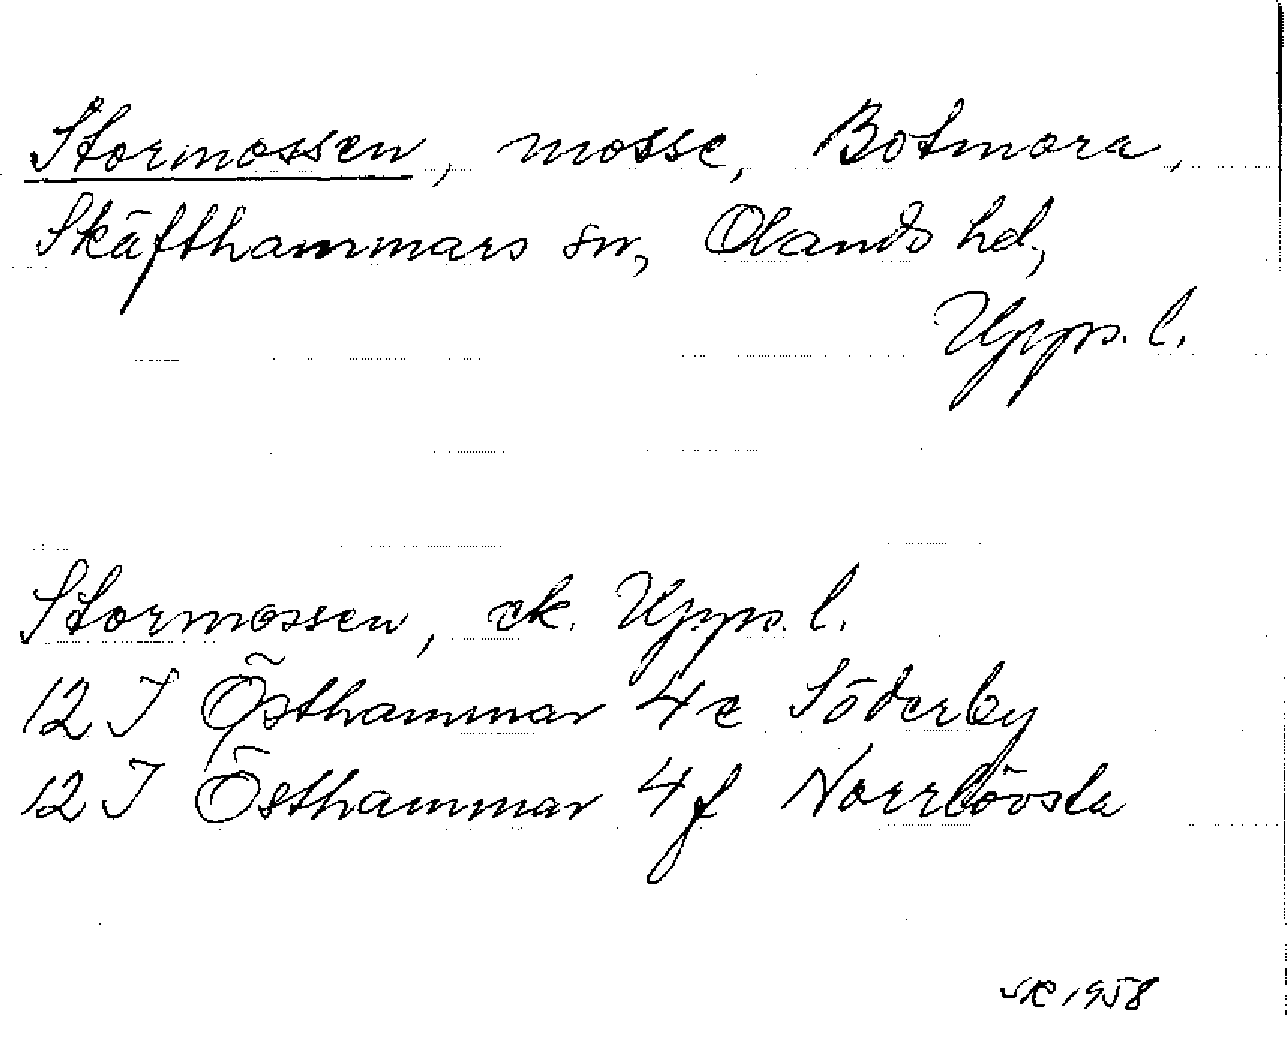 Stormossen, mosse, Botmora,
Skäfthammars sn, Olands hd,
Upps. l.
Stormossen, ek. Upps. l.
12 I Östhammar 4e Söderby
12 I Östhammar 4f Norrlövsta
1958